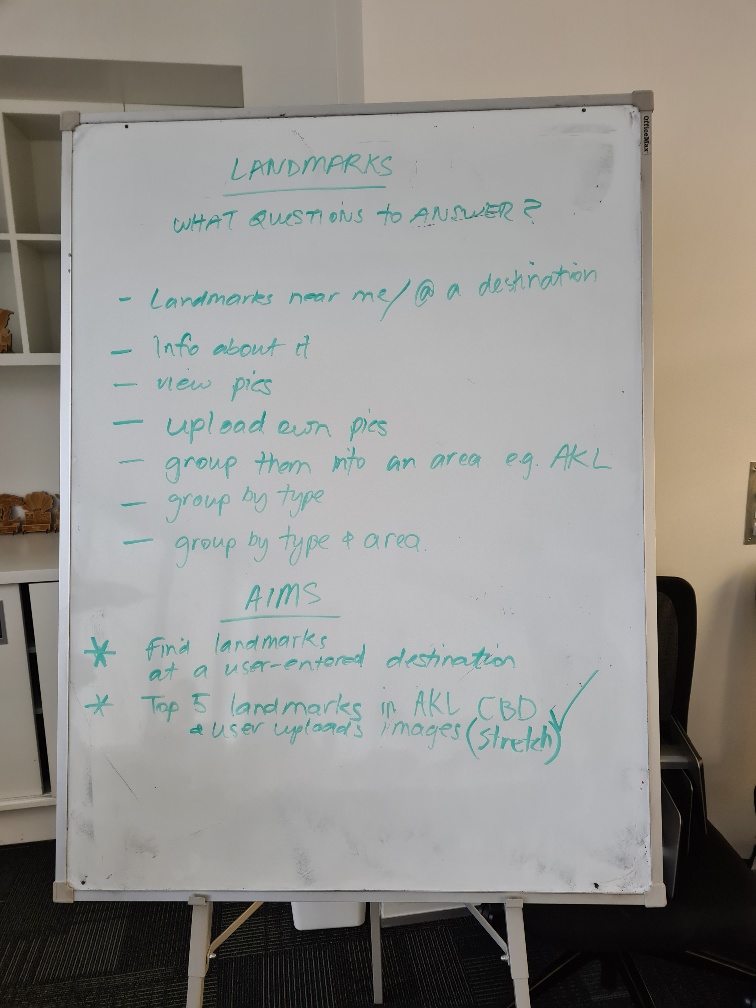 OfficeMax
LANDMARKS
WHAT QUESTIONS to ANSWER?
- Landmarks near me/ @ a destination
- Info about it
- view pics
- upload own pics
- group them into an area e.g. AKL
- group by type
- group by type & area.
AIMS
* Find landmarks
at a user-entered destination
* Top 5 landmarks in AKL CBD
& user uploads images (stretch) ✓